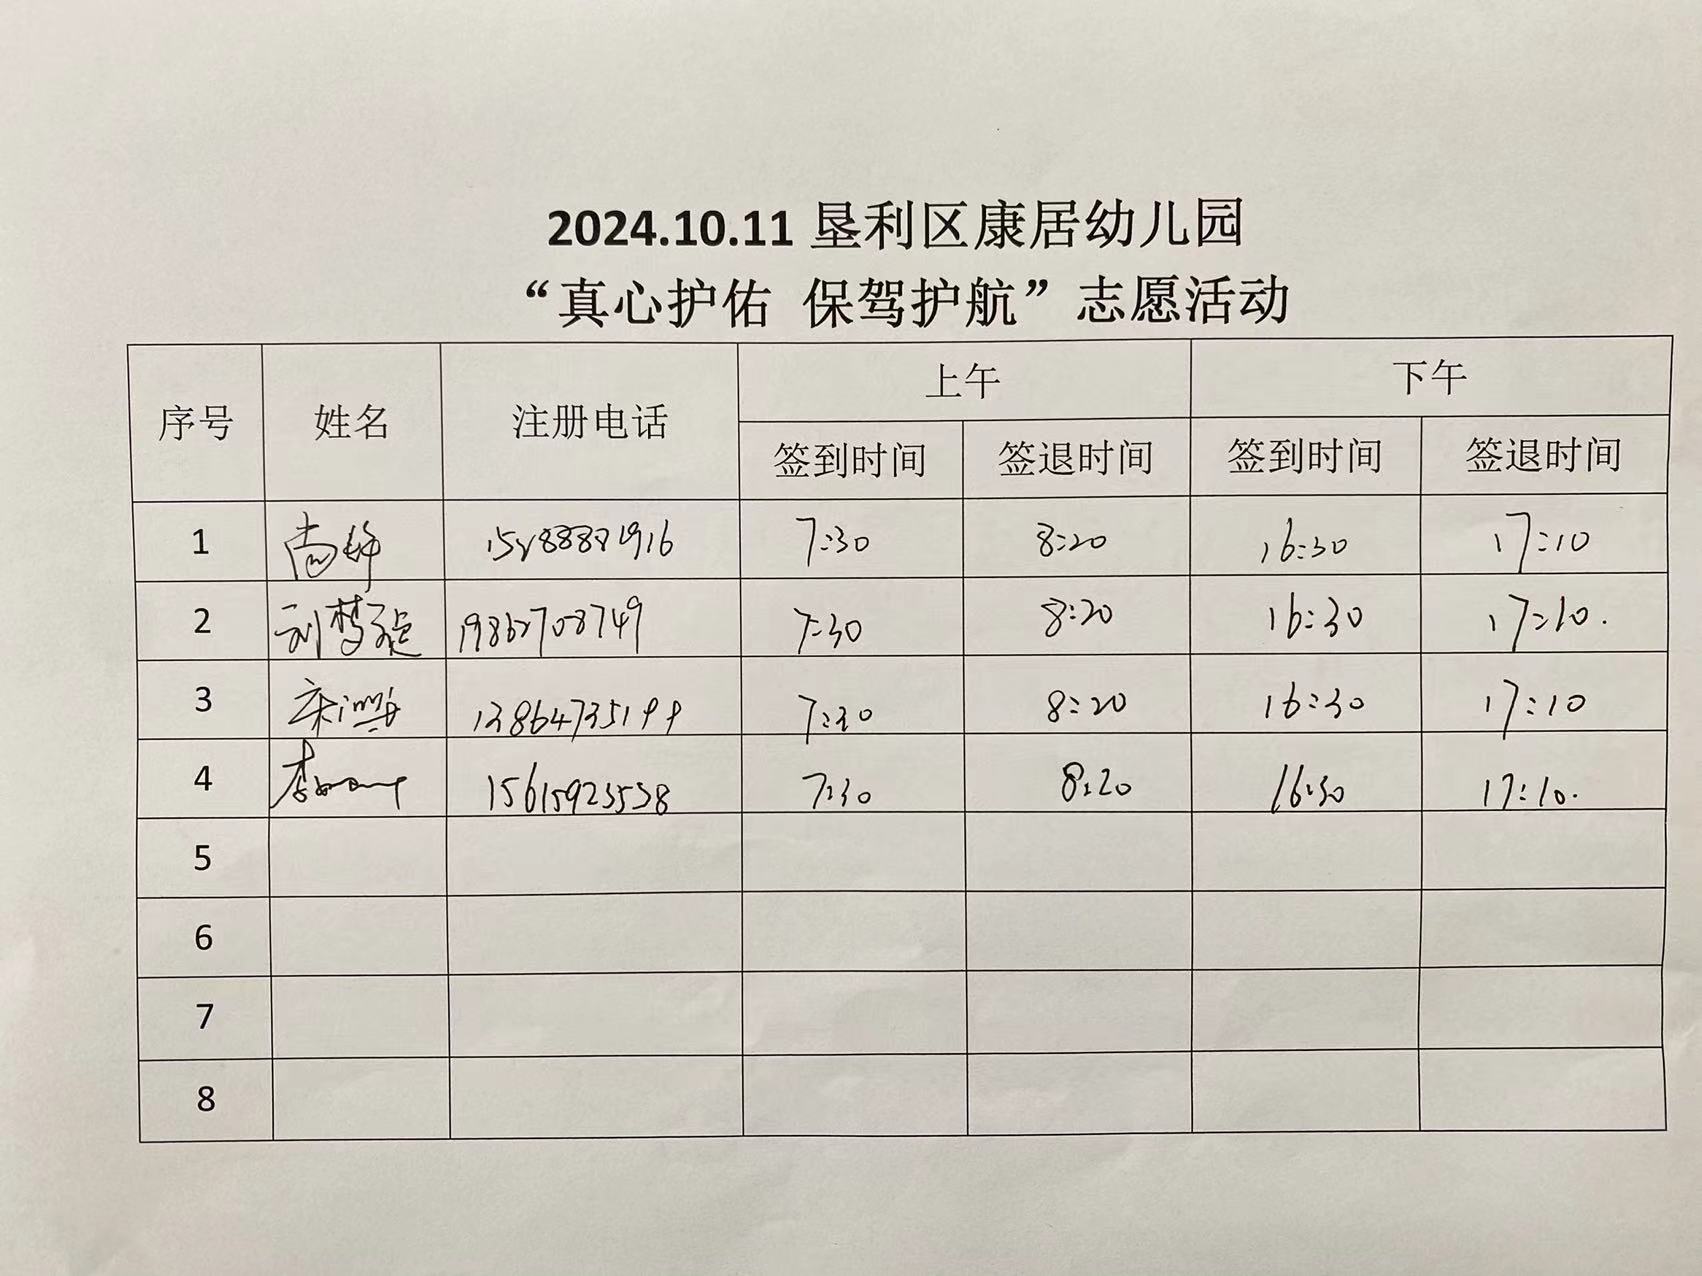 2024.10.11 垦利区康居幼儿园
“真心护佑 保驾护航”志愿活动
序号 姓名 注册电话 上午 下午
签到时间 签退时间 签到时间 签退时间
1 尚静 7:30 8:20 16:30 17:10
2 刘梦 7:30 8:20 16:30 17:10.
3 13864735199 7:30 8:20 16:30 17:10
4 李 15615923538 7:30 8:20 16:30 17:10.
5
6
7
8